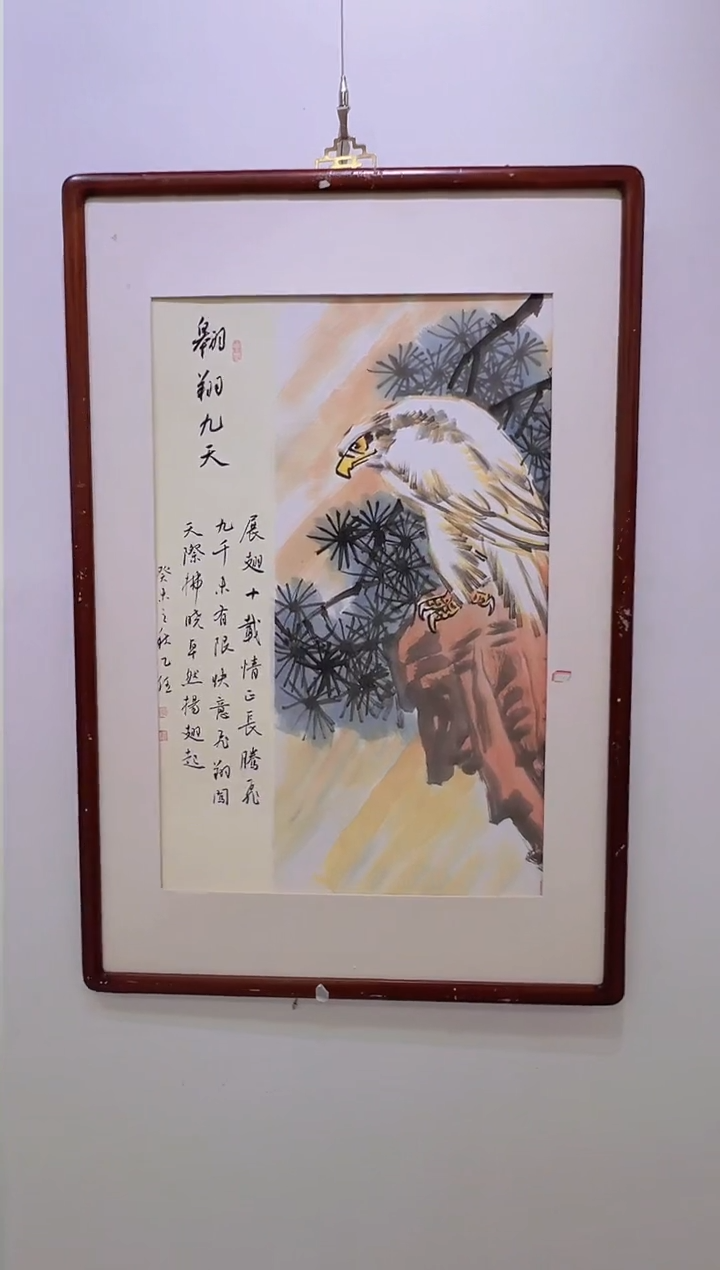 翱翔九天
展翅十載情正長騰飛
九千未有限快意飞翔闯
天際拂晓卓然揚翅起
癸未之秋乙任